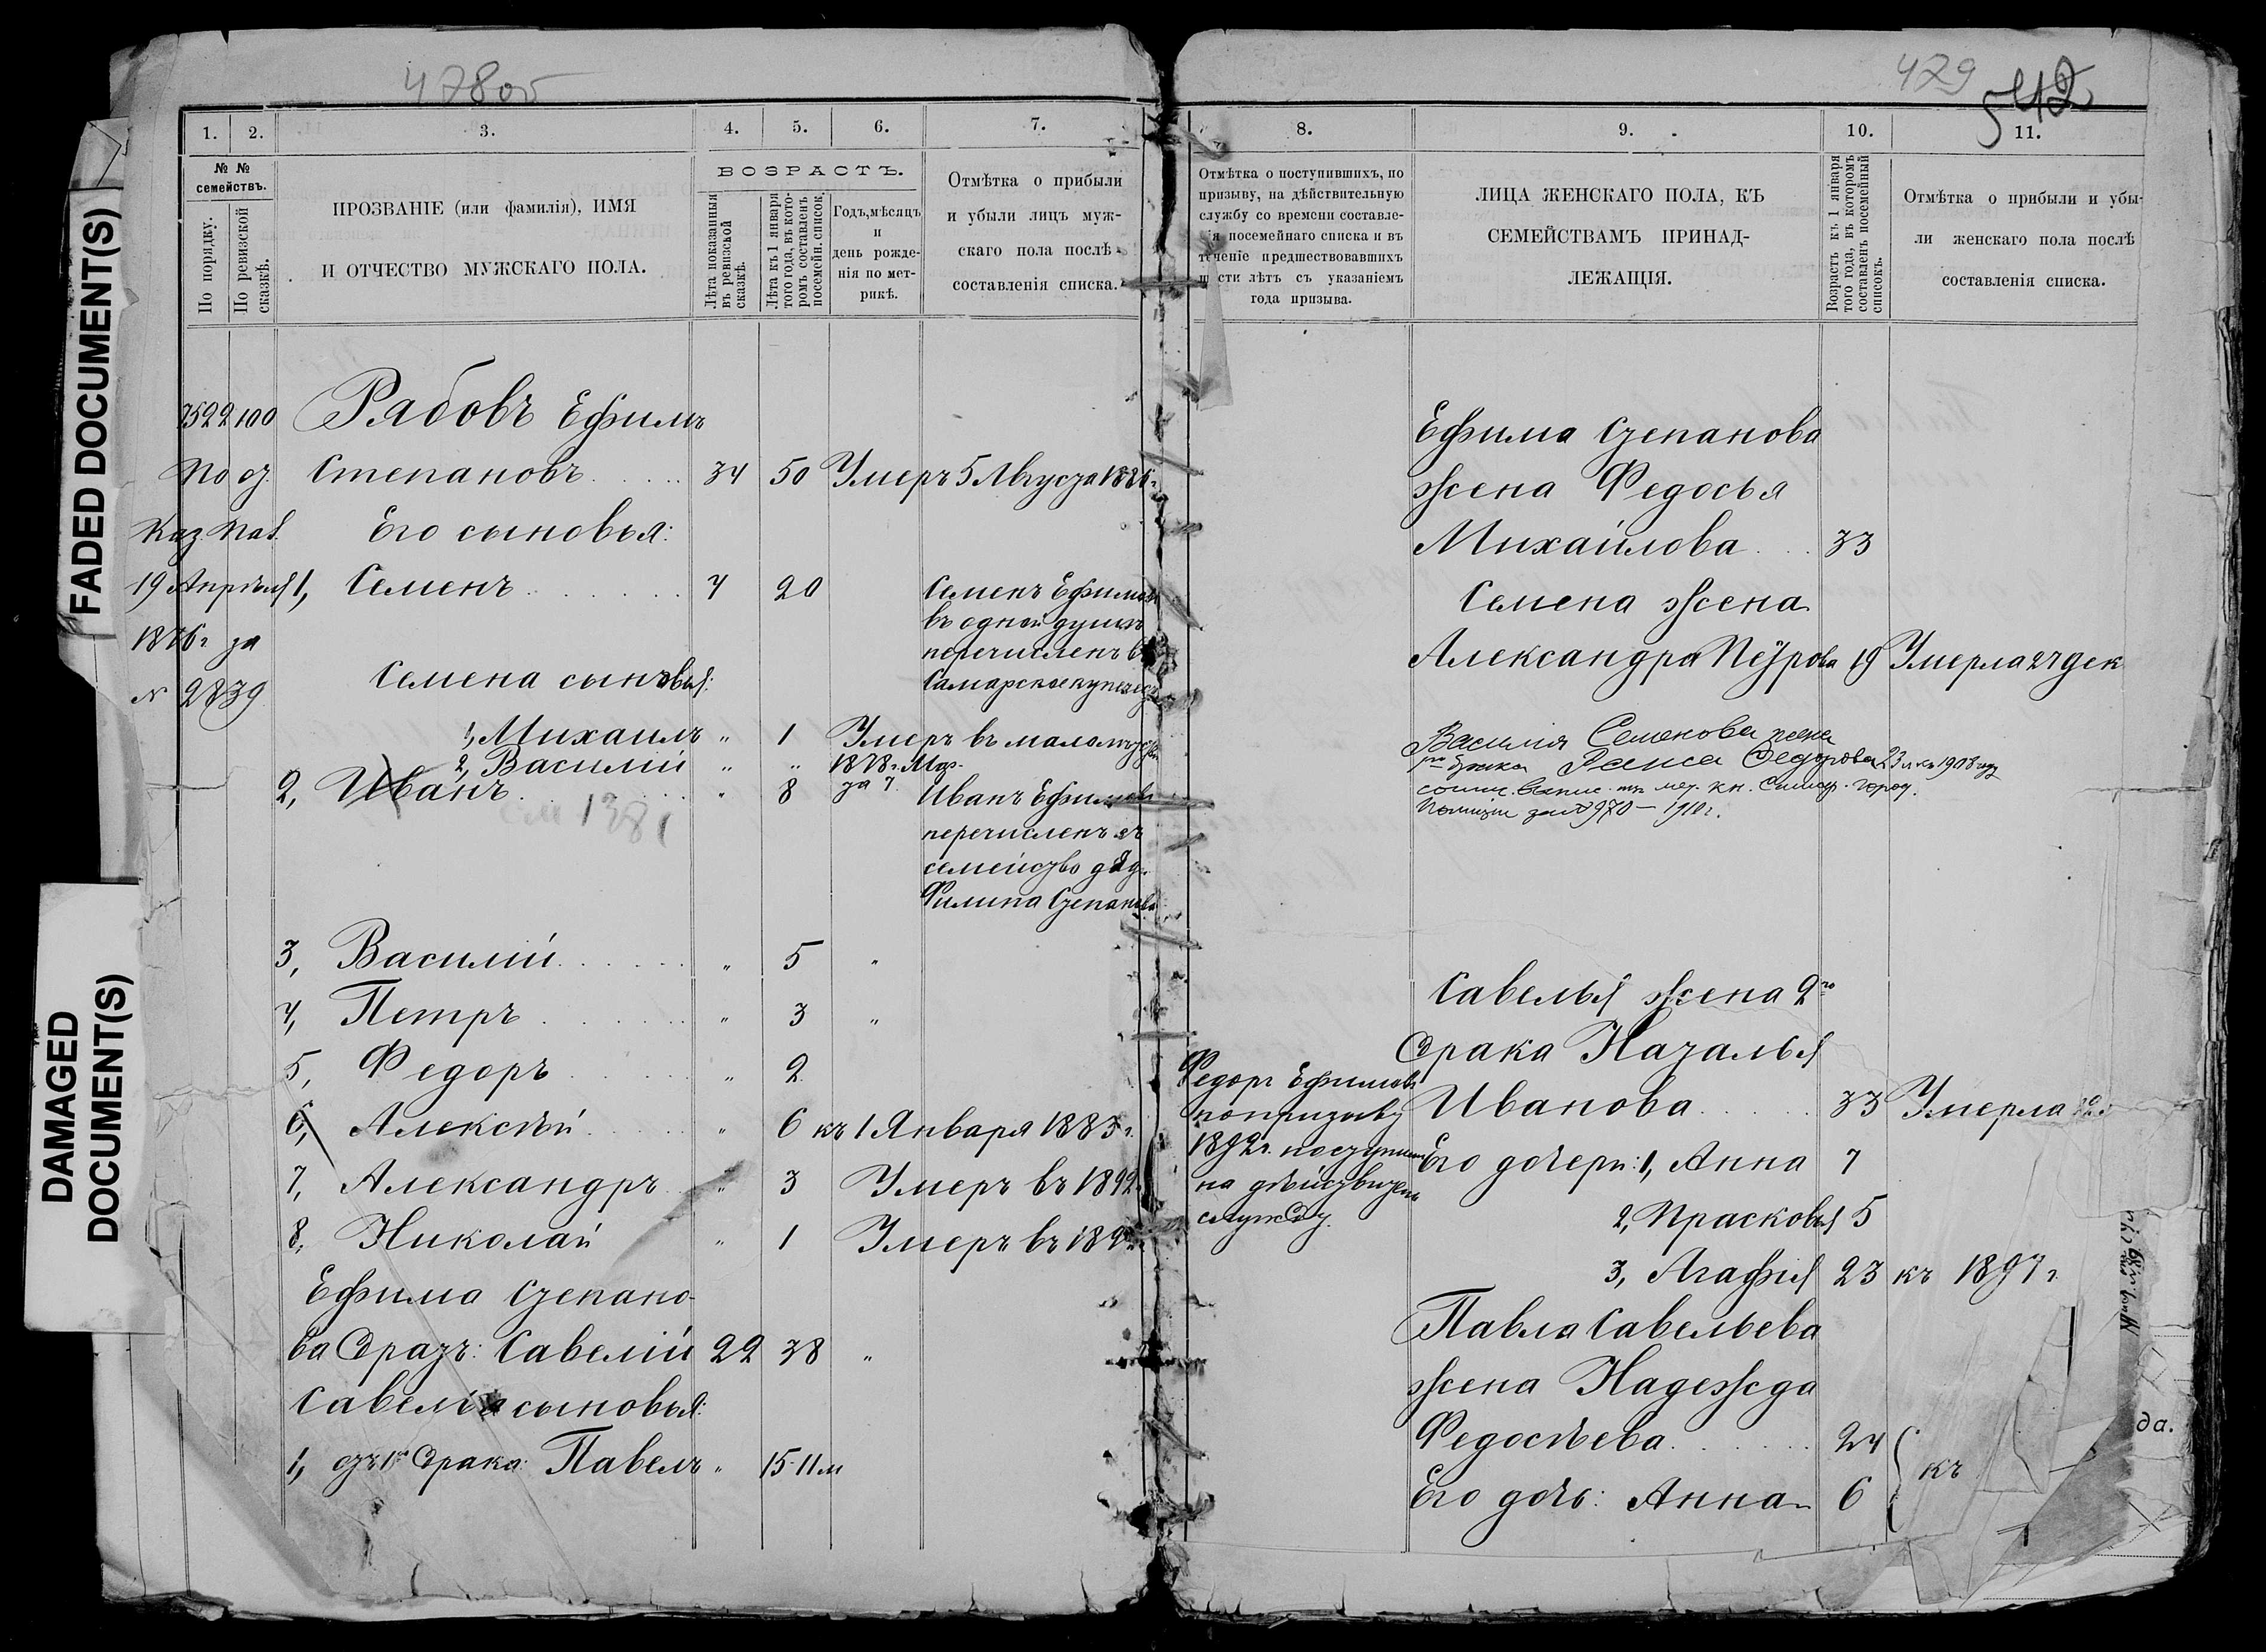 FADED DOCUMENT(S)
DAMAGED
DOCUMENT(S)
478об
1. 2. 3. 4. 5. 6. 7.
№ №
семействъ.
По порядку.
По ревизской
сказкѣ.
ПРОЗВАНІЕ (или фамилія), ИМЯ
И ОТЧЕСТВО МУЖСКАГО ПОЛА.
ВОЗРАСТЪ.
Лѣта показанныя
въ ревизской
сказкѣ.
Лѣта къ 1 января
того года, въ кото-
ромъ составленъ
посемейн. список.
Годъ, мѣсяцъ
и
день рожде-
нія по мет-
рикѣ.
Отмѣтка о прибыли
и убыли лицъ муж-
скаго пола послѣ
составленія списка.
752 2100 Рябовъ Ефимъ
По от. Степановъ 34 50 Умеръ 5 Августа 188
Каз. Пал. Его сыновья:
19 Апрѣля 1, Семенъ 4 20
1876г за
№ 2839
Семенъ Ефимовъ
въ одной душѣ
перечисленъ въ
Самарское купечест
Семена сыновья:
1, Михаилъ " 1 Умеръ въ малолѣтст
2, Василій " " 1878г. Мар.
за 7.
2, Иванъ " 8
см 1381
Иванъ Ефимовъ
перечисленъ въ
семейство дяд.
Филипа Степанова
3, Василій " 5 "
4, Петръ " 3 "
5, Федоръ " 2
6, Алексѣй " 6 къ 1 Января 1885г.
7, Александръ " 3 Умеръ въ 1892
8, Николай " 1 Умеръ въ 189
Ефима Степано-
ва братъ: Савелій 22 38 "
Савелья сыновья:
1, отъ 1го брака: Павелъ " 15-11м
479
542
8. 9. 10. 11.
Отмѣтка о поступившихъ, по
призыву, на дѣйствительную
службу со времени составле-
ія посемейнаго списка и въ
теченіе предшествовавшихъ
шести лѣтъ съ указаніемъ
года призыва.
ЛИЦА ЖЕНСКАГО ПОЛА, КЪ
СЕМЕЙСТВАМЪ ПРИНАД-
ЛЕЖАЩІЯ.
Возрастъ къ 1 января
того года, въ которомъ
составленъ посемейный
списокъ.
Отмѣтка о прибыли и убы-
ли женскаго пола послѣ
составленія списка.
Ефима Степанова
жена Федосья
Михайлова 33
Семена жена
Александра Петрова 19 Умерла 27 дек
Василія Семенова жена
1го брака Раиса Федорова 23 л къ 1908 году
мет. кн. город.
Полиціи за № 970 — 1910г.
Савелья жена 2го
брака Наталья
Иванова 33 Умерла
Федоръ Ефимовъ
по призыву
1892г. поступилъ
на дѣйствитель
службу.
Его дочери: 1, Анна 7
2, Прасковья 5
3, Агафья 23 къ 1897г.
Павла Савельева
жена Надежда
Федосѣева 24
Его дочь: Анна 6
къ
да.